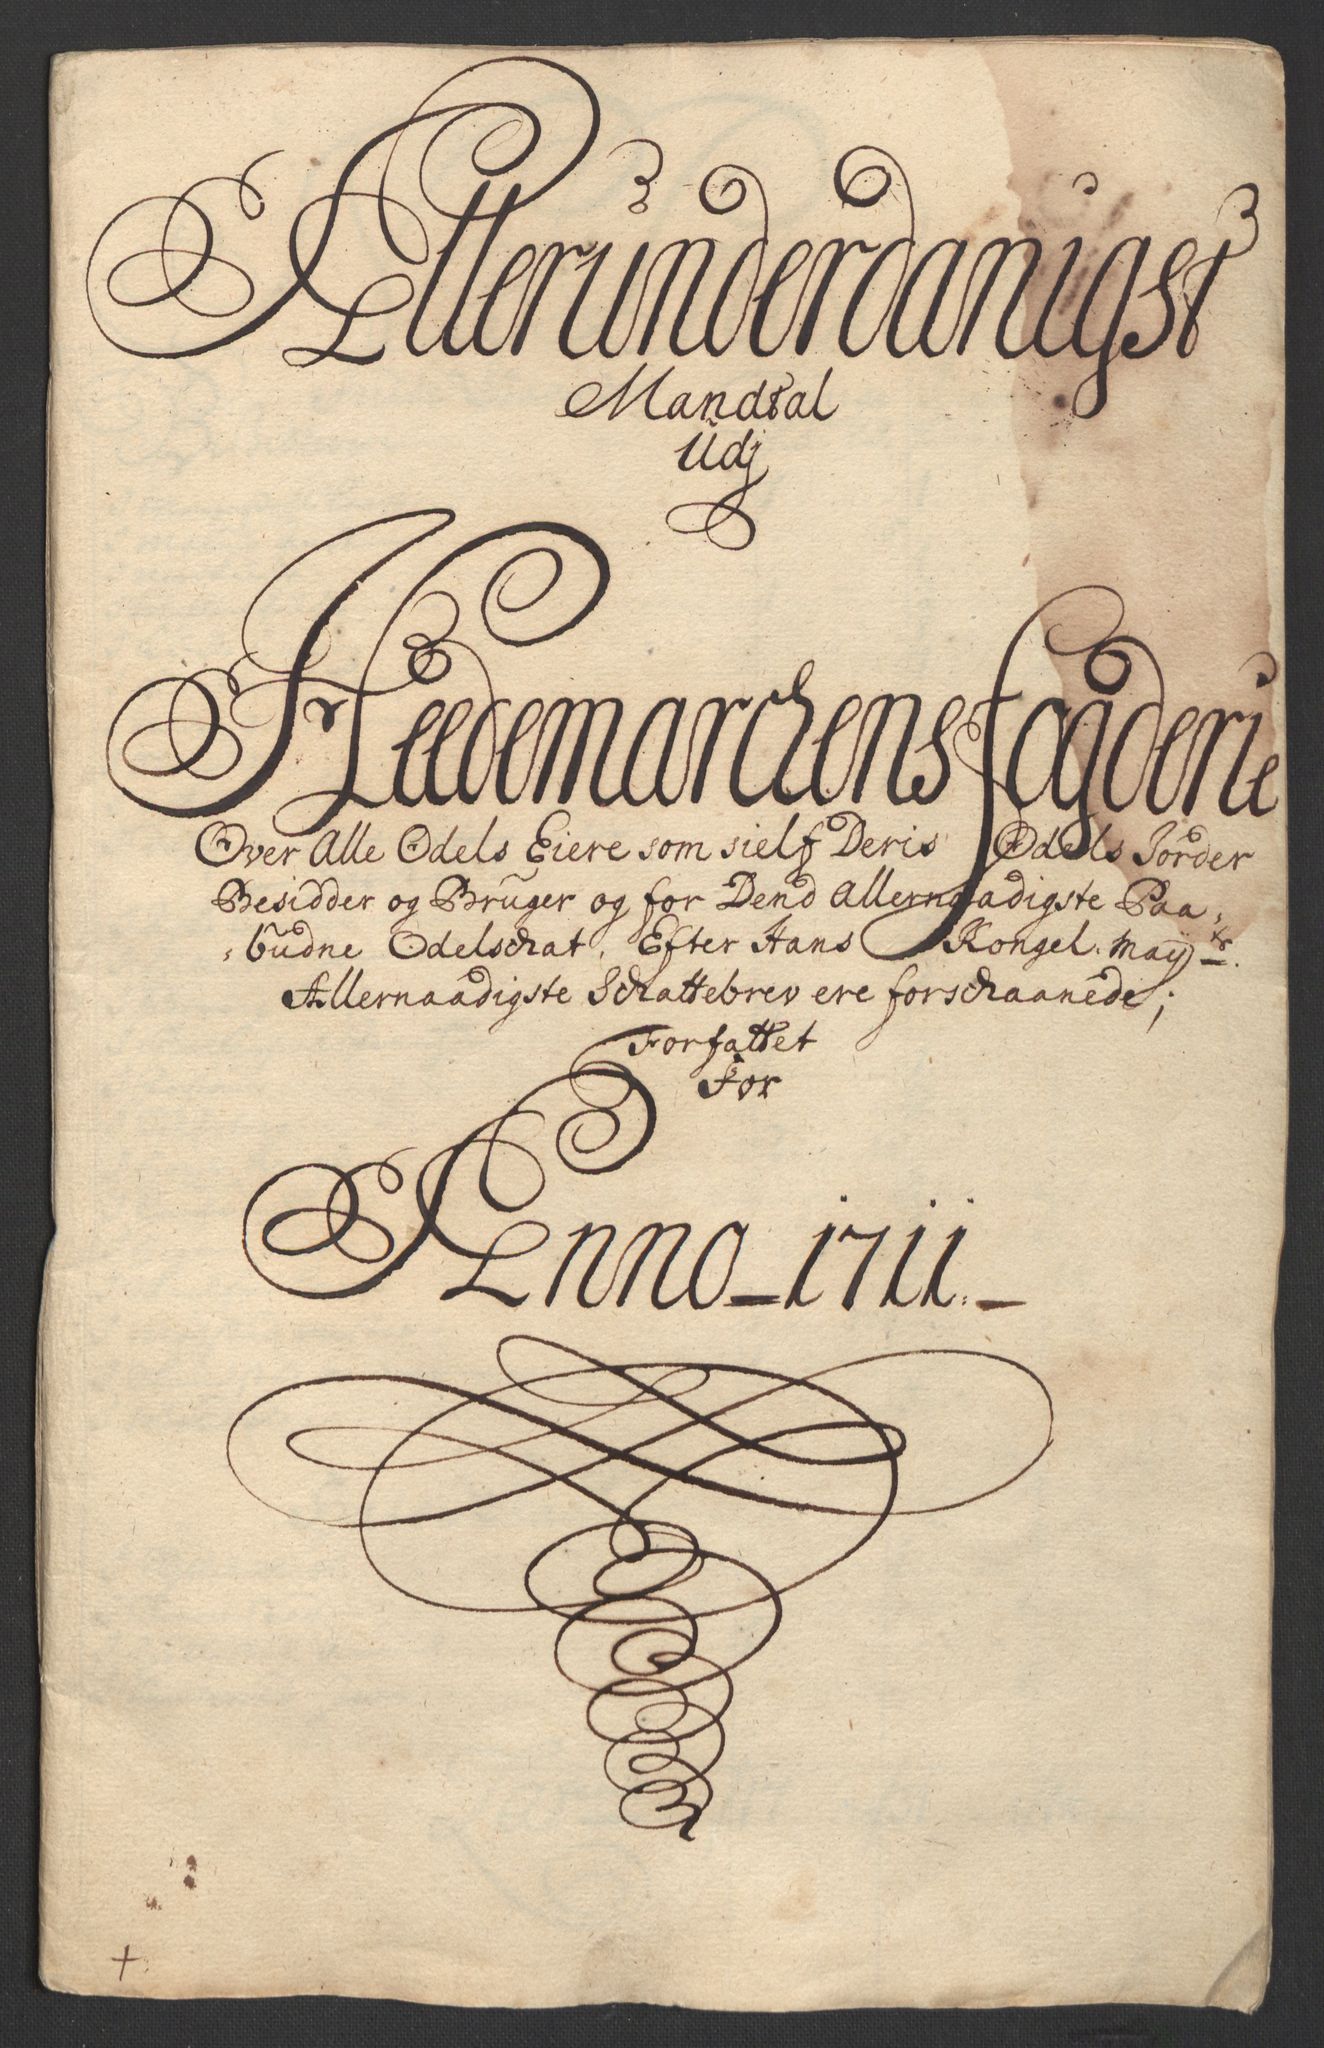 Allerunderdanigst
Mandtal
Udj
Heedemarchens fogderie
Over Alle Odels Eiere som sielf Deris Odels Jorder
Besidder og Bruger og for Dend Allernaadigste Paa-
-budne Odelschat. Efter Hans Kongel. Mayts.
Allernaadigste Schattebrev ere forschaanede;
Forfattet
For
Anno 1711.